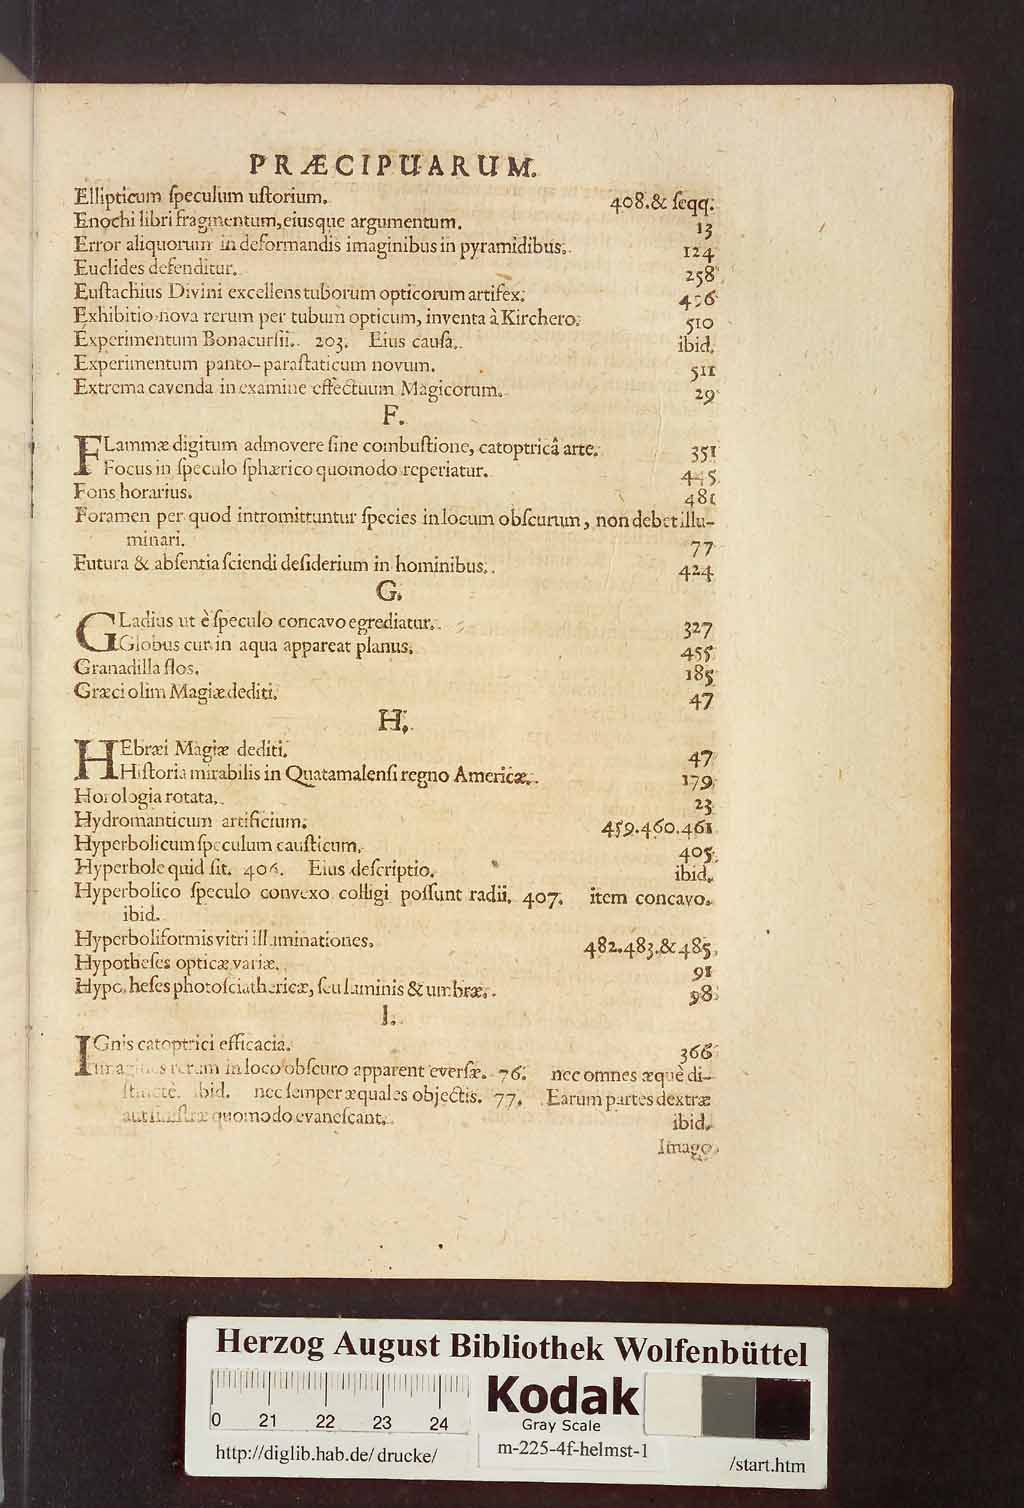 PRÆCIPUARUM.
Ellipticum ſpeculum uſtorium. 408.& ſeqq.
Enochi libri fragmentum, eiusque argumentum. 13
Error aliquorum in deformandis imaginibus in pyramidibus. 124
Euclides defenditur. 258
Euſtachius Divini excellens tuborum opticorum artifex.
Exhibitio nova rerum per tubum opticum, inventa à Kirchero. 510
Experimentum Bonacurſii. 203. Eius cauſa. ibid.
Experimentum panto-paraſtaticum novum. 511
Extrema cavenda in examine effectuum Magicorum. 29
F.
FLammæ digitum admovere ſine combuſtione, catoptricâ arte. 351
Focus in ſpeculo ſphærico quomodo reperiatur.
Fons horarius. 481
Foramen per quod intromittuntur ſpecies in locum obſcurum, non debet illu-
minari. 77
Futura & abſentia ſciendi deſiderium in hominibus. 424
G.
GLadius ut è ſpeculo concavo egrediatur. 327
Globus cur in aqua appareat planus. 455
Granadilla flos. 185
Græci olim Magiæ dediti. 47
H.
HEbræi Magiæ dediti. 47
Hiſtoria mirabilis in Quatamalenſi regno Americæ. 179
Horologia rotata. 23
Hydromanticum artificium. 459.460.461
Hyperbolicum ſpeculum cauſticum. 405
Hyperbole quid ſit. 406. Eius deſcriptio. ibid.
Hyperbolico ſpeculo convexo colligi poſſunt radii. 407. item concavo.
ibid.
Hyperboliformis vitri illuminationes. 482.483.& 485.
Hypotheſes opticæ variæ. 91
Hypotheſes photoſciathericæ, ſeu luminis & umbræ. 98
I.
IGnis catoptrici efficacia. 366
Imagines rerum in loco obſcuro apparent everſæ. 76. nec omnes æquè di-
ſtinctè. ibid. nec ſemper æquales objectis. 77. Earum partes dextræ
aut ſiniſtræ quomodo evaneſcant. ibid.
Imago
Herzog August Bibliothek Wolfenbüttel
0 21 22 23 24
Kodak
Gray Scale
http://diglib.hab.de/drucke/
m-225-4f-helmst-1
/start.htm